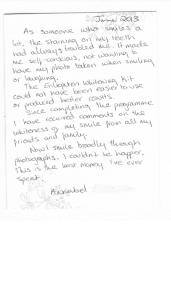 June 2013
As someone who smiles a
lot, the staining on my teeth
had always troubled me. It made
me self-conscious, not wanting to
have my photo taken when smiling
or laughing.
The Enlighten Whitening Kit
could not have been easier to use
or produced better results.
Since completing the programme
I have received comments on the
whiteness of my smile from all my
friends and family.
Now I smile broadly through
photographs. I couldn't be happier.
This is the best money I've ever
spent.